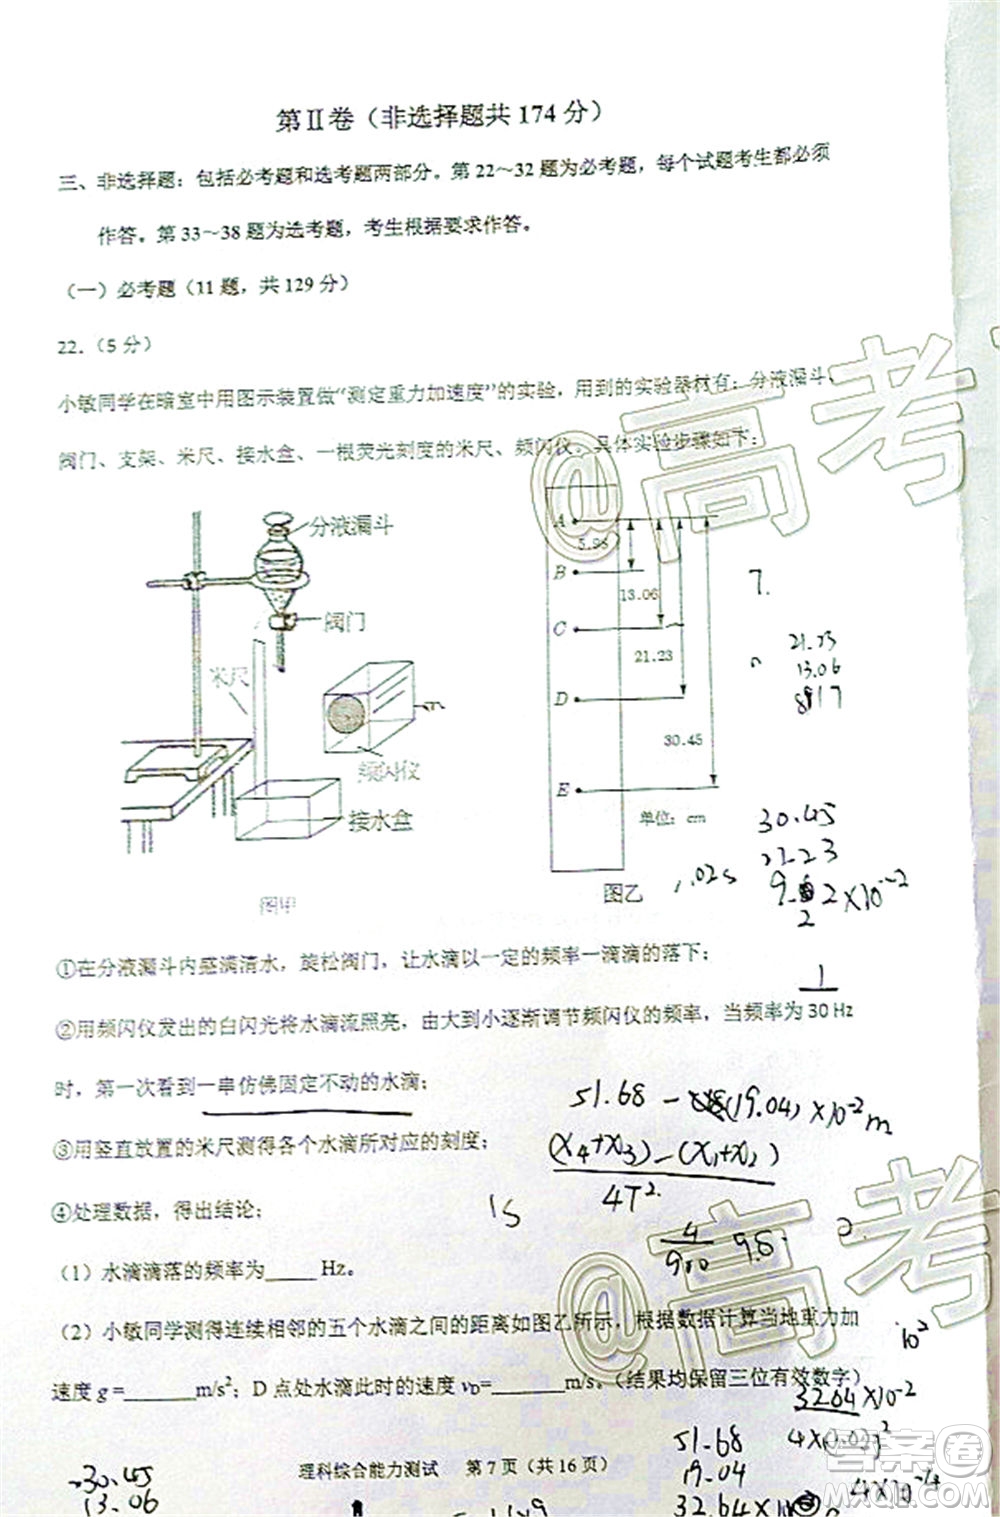 第Ⅱ卷（非选择题共 174 分）
三、非选择题：包括必考题和选考题两部分。第 22～32 题为必考题，每个试题考生都必须
作答。第 33～38 题为选考题，考生根据要求作答。
（一）必考题（11 题，共 129 分）
22.（5 分）
小敏同学在暗室中用图示装置做“测定重力加速度”的实验，用到的实验器材有：分液漏斗、
阀门、支架、米尺、接水盒、一根荧光刻度的米尺、频闪仪。具体实验步骤如下：
分液漏斗
阀门
米尺
频闪仪
接水盒
图甲
A
5.98
B
13.06
C
21.23
D
30.45
E
单位：cm
图乙
7.
21.23
13.06
817
30.45
21.23
9.22×10⁻²
2
1.02s
①在分液漏斗内盛满清水，旋松阀门，让水滴以一定的频率一滴滴的落下；
1
②用频闪仪发出的白闪光将水滴流照亮，由大到小逐渐调节频闪仪的频率，当频率为 30 Hz
时，第一次看到一串仿佛固定不动的水滴；
51.68 - (19.04)×10⁻² m
③用竖直放置的米尺测得各个水滴所对应的刻度；
(x₄+x₃)-(x₁+x₂)
4T²
④处理数据，得出结论；
1s
4
9.8
（1）水滴滴落的频率为____ Hz。
（2）小敏同学测得连续相邻的五个水滴之间的距离如图乙所示，根据数据计算当地重力加
10²
速度 g =______m/s²；D 点处水滴此时的速度 vD=______m/s。（结果均保留三位有效数字）
32.64×10⁻²
51.68
19.04
32.64×10
4×10⁻⁴
30.45
13.06
理科综合能力测试 第 7 页（共 16 页）
@高考
@高考
答案卷
MXQE.COM